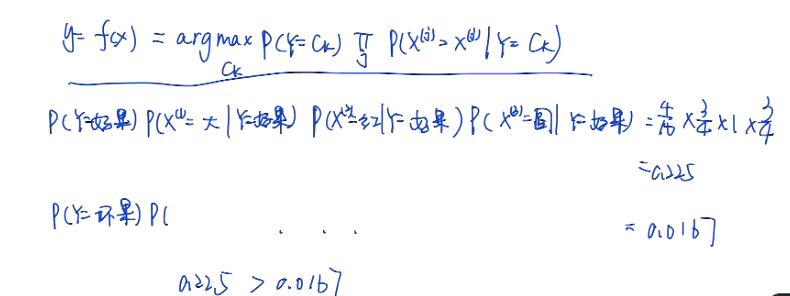 y = f(x) = argmax P(Y=Ck) ∏ P(X^(j) = x^(j) | Y = Ck)
Ck j
P(Y=好果) P(X^(1) = 大 | Y=好果) P(X^(2)=红 | Y=好果) P(X^(3)=圆 | Y=好果) = 4/10 × 3/4 × 1 × 3/4
= 0.225
P(Y=坏果) P( . . . = 0.0167
0.225 > 0.0167